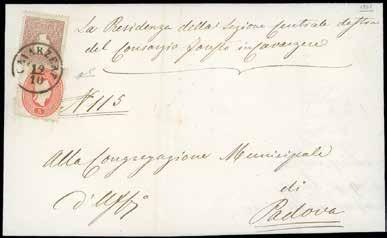 La Residenza della Sezione Centrale destra
del Consorgio in Cavarzere
CAVARZERE
12
10
5
N. 115
Alla Congregazione Municipale
d'Uff.o
di
Padova